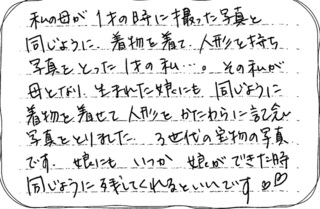 私の母が 1才の時に撮った写真と
同じように、着物を着て、人形を持ち
写真をとった 1才の私…。その私が
母となり、生まれた娘にも 同じように
着物を着せて人形を かたわらに 記念
写真をとりました。 3世代の宝物の写真
です。 娘にも いつか 娘ができた時
同じように 残してくれるといいです ♡♡